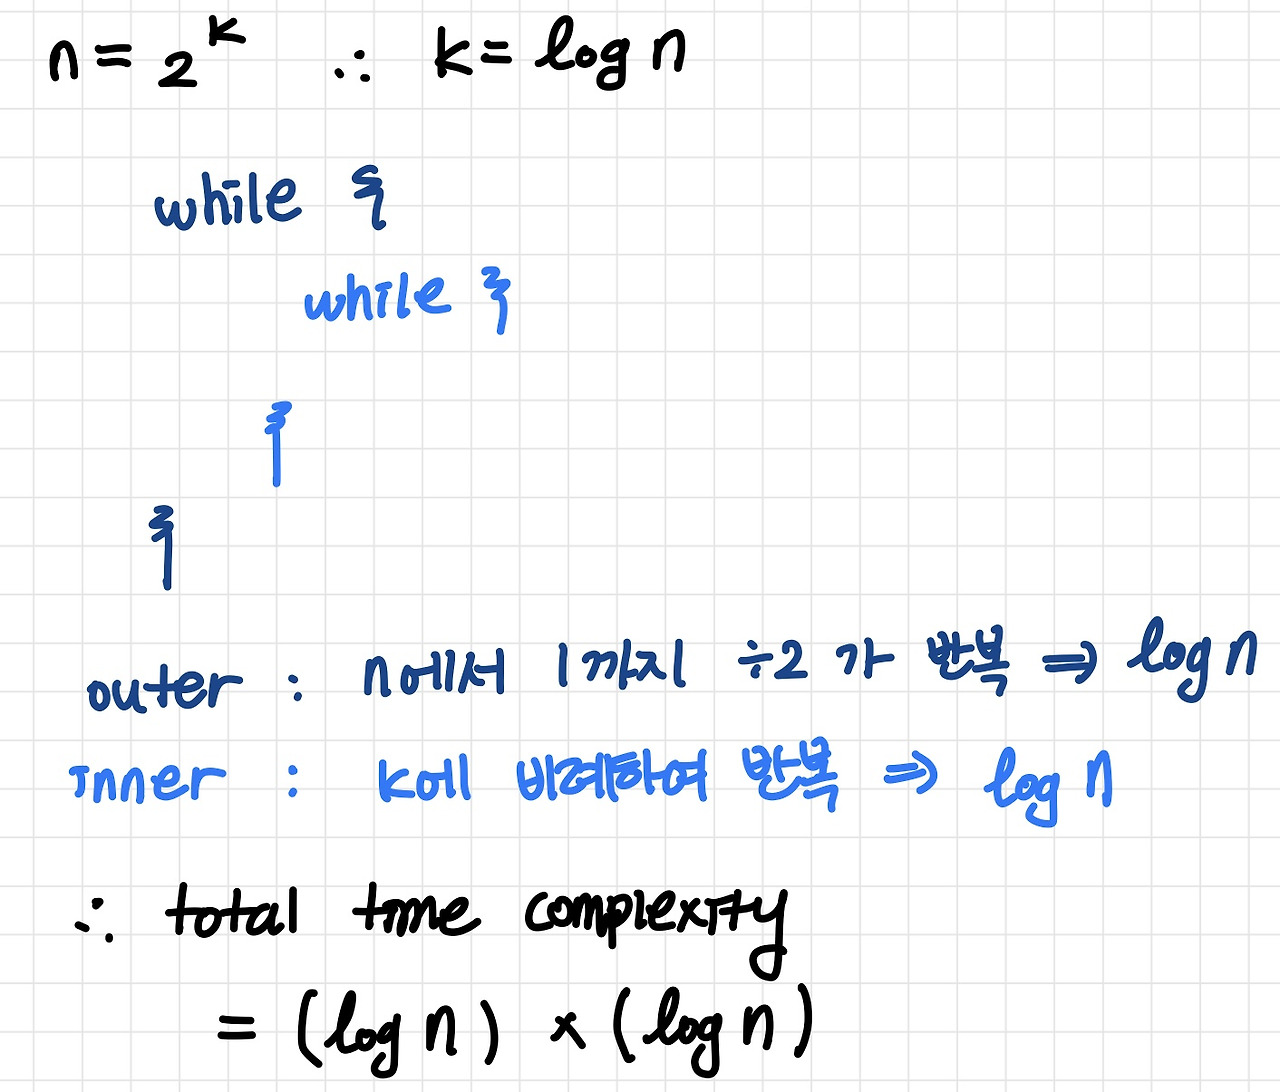 n = 2^k ∴ k = log n
while {
while {
}
}
outer : n에서 1까지 ÷2 가 반복 ⇒ log n
inner : k에 비례하여 반복 ⇒ log n
∴ total time complexity
= (log n) × (log n)